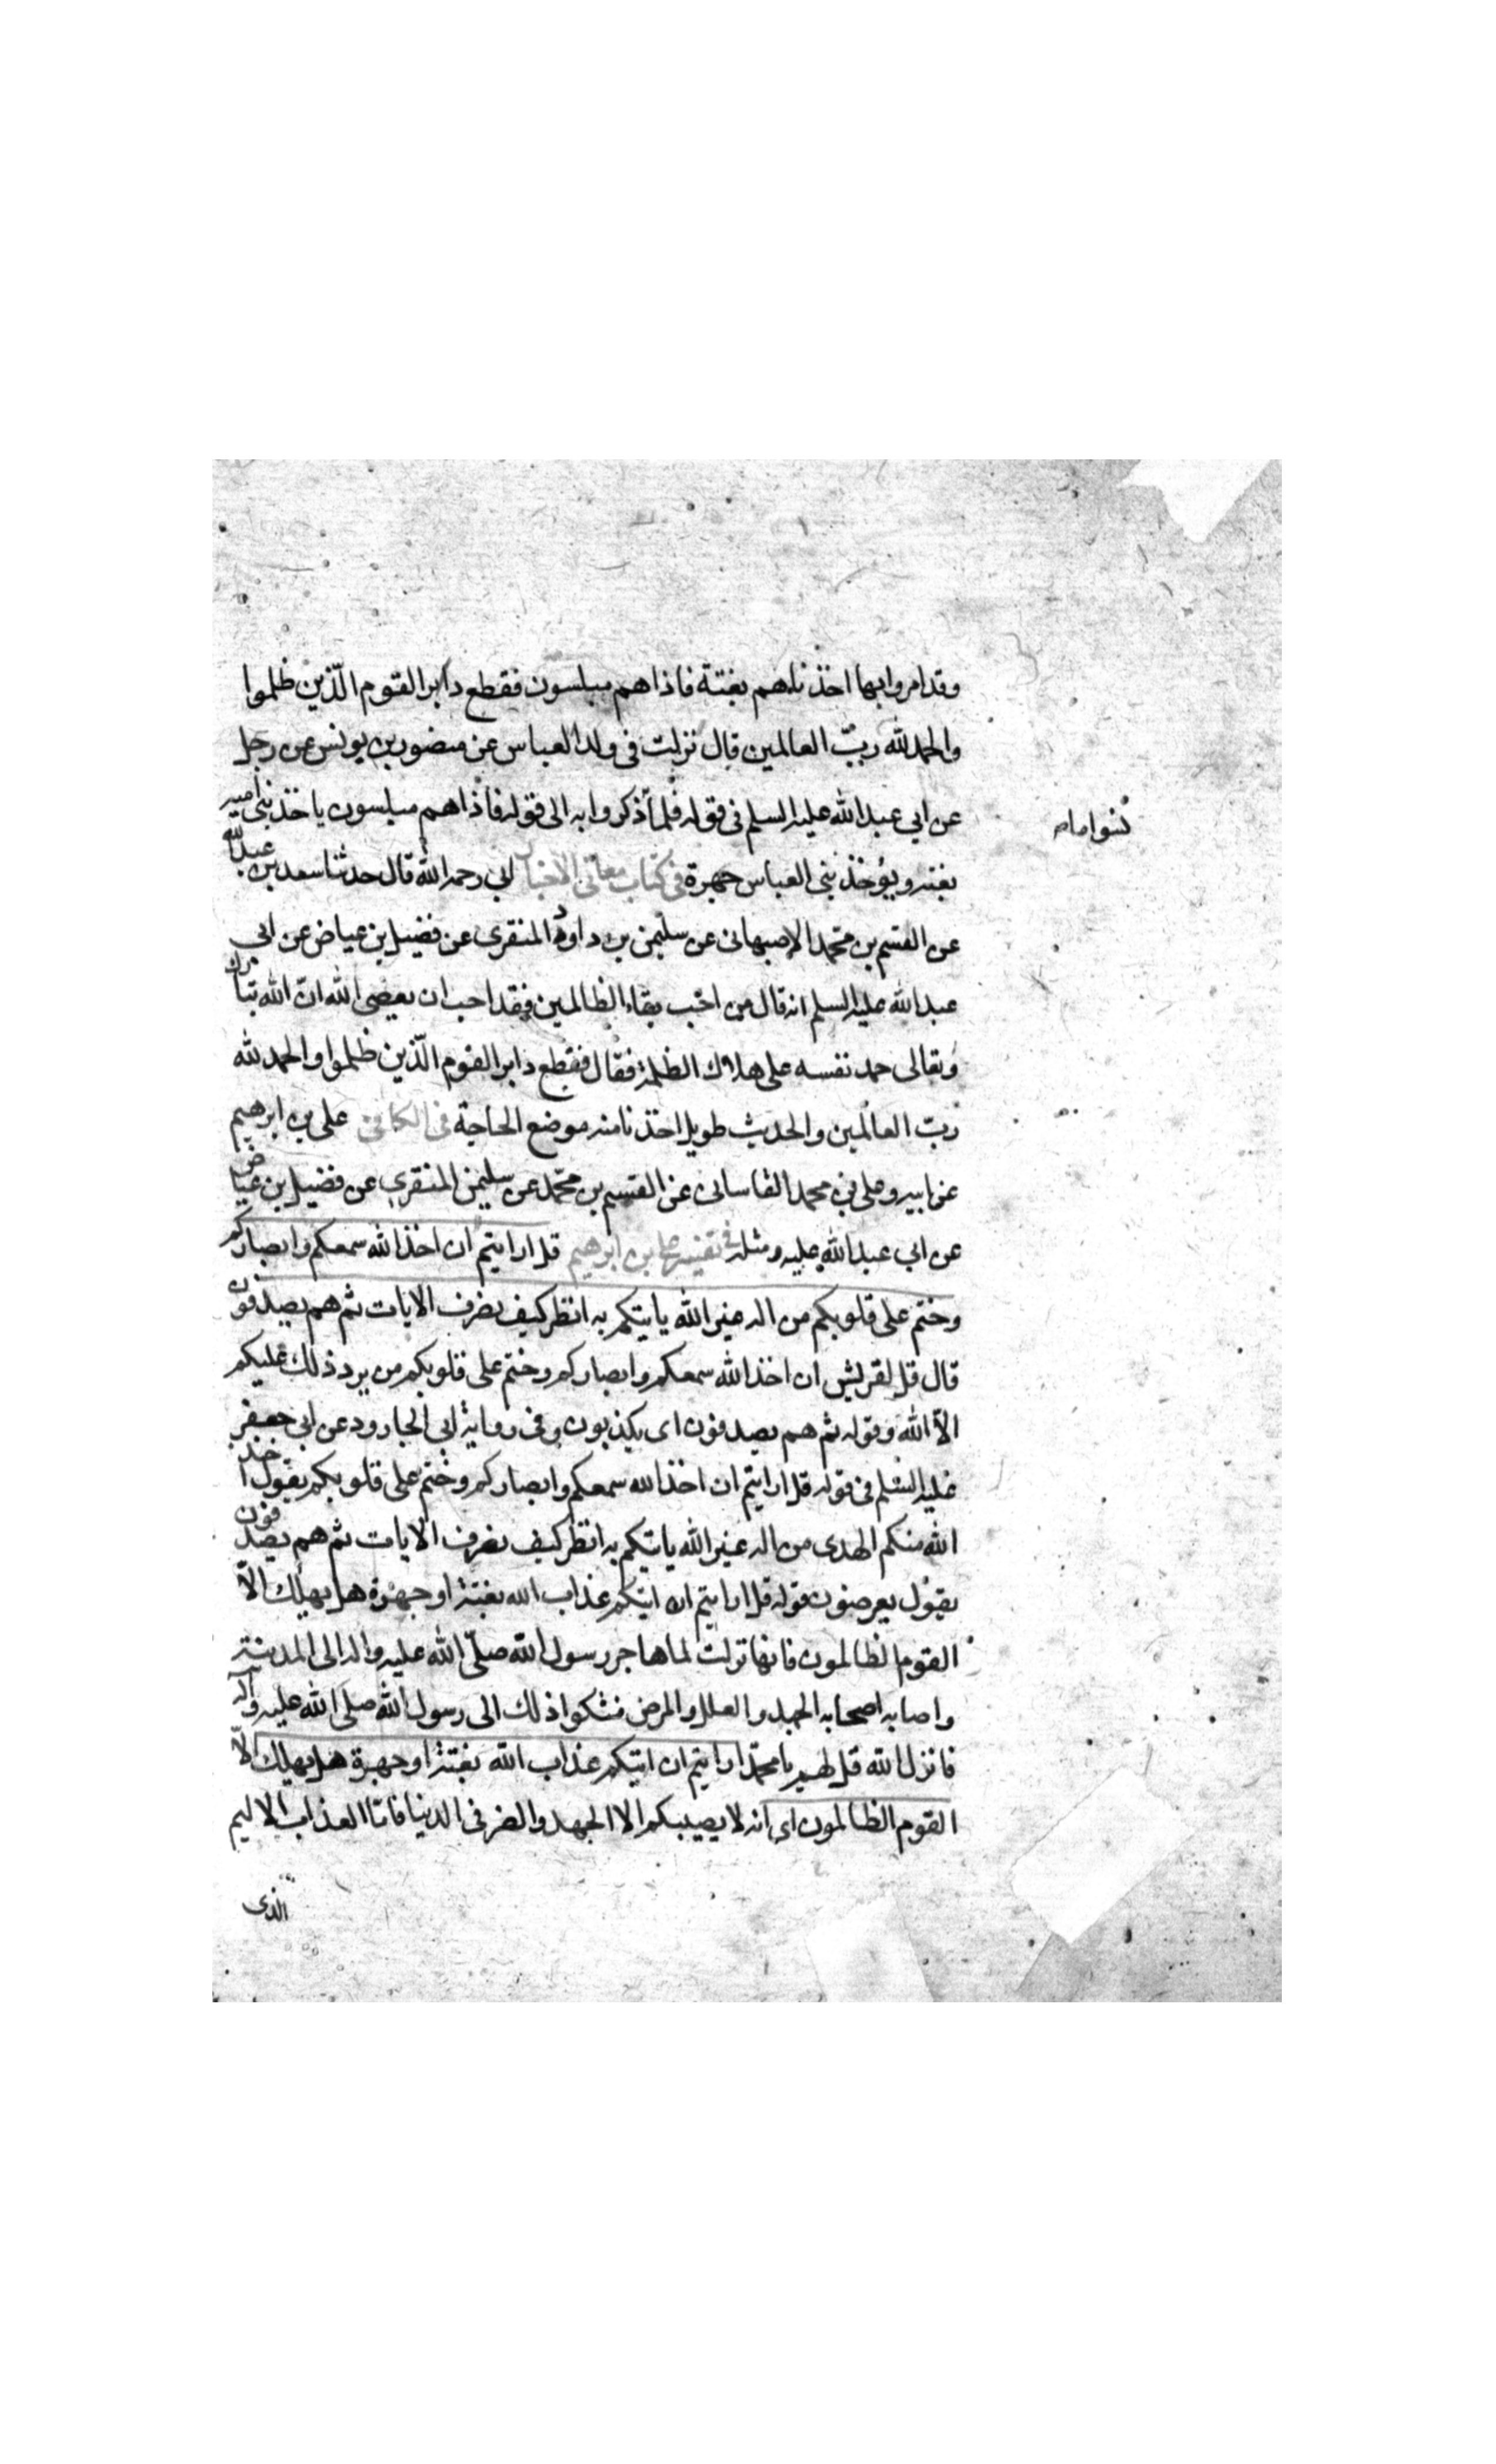 وقد امروا بها اخذناهم بغتة فاذاهم مبلسون فقطع دابر القوم الّذين ظلموا
والحمد لله ربّ العالمين قال نزلت فى ولد العباس عن منصور بن يونس عن رجل
عن ابي عبدالله عليه السلم فى قوله فلما ذكروا به الى قوله فاذاهم مبلسون ياخذ بنى امية
نسوا ما
بغتة ويؤخذ بنى العباس جهرة فى كتاب معانى الاخبار ابي رحمه الله قال حدثنا سعد بن عبدالله
عن القسم بن محمّد الاصبهانى عن سليمن بن داود المنقرى عن فضيل بن عياض عن ابي
عبدالله عليه السلم انه قال من احب بقاء الظالمين فقد احب ان يعصى الله انّ الله تبارك
وتعالى حمد نفسه على هلاك الظلمة فقال فقطع دابر القوم الّذين ظلموا والحمد لله
ربّ العالمين والحديث طويل اخذنا منه موضع الحاجة فى الكافى على بن ابرهيم
عن ابيه وعلى بن محمد القاسانى عن القسم بن محمّد عن سليمن المنقرى عن فضيل بن عياض
عن ابي عبدالله عليه ومثله فى تفسير على بن ابرهيم قل ارايتم ان اخذ الله سمعكم وابصاركم
وختم على قلوبكم من اله غير الله ياتيكم به انظر كيف نصرف الايات ثم هم يصدفون
قال قل لقريش ان اخذ الله سمعكم وابصاركم وختم على قلوبكم من يرد ذلك عليكم
الّا الله وقوله ثم هم يصدفون اى يكذبون وفى رواية ابى الجارود عن ابي جعفر
عليه السلم فى قوله قل ارايتم ان اخذ الله سمعكم وابصاركم وختم على قلوبكم يقول اخذ
الله منكم الهدى من اله غير الله ياتيكم به انظر كيف نصرف الايات ثم هم يصدفون
يقول يعرضون قوله قل ارايتم ان اتيكم عذاب الله بغتة او جهرة هل يهلك الّا
القوم الظالمون فانها نزلت لما هاجر رسول الله صلّى الله عليه واله الى المدينة
واصابه اصحابه الجهد والعلل والمرض فشكوا ذلك الى رسول الله صلى الله عليه وآله
فانزل الله قل لهم يا محمّد ارايتم ان اتيكم عذاب الله بغتة او جهرة هل يهلك الّا
القوم الظالمون اى انه لا يصيبكم الا الجهد والضر فى الدنيا فاما العذاب الاليم
الذى